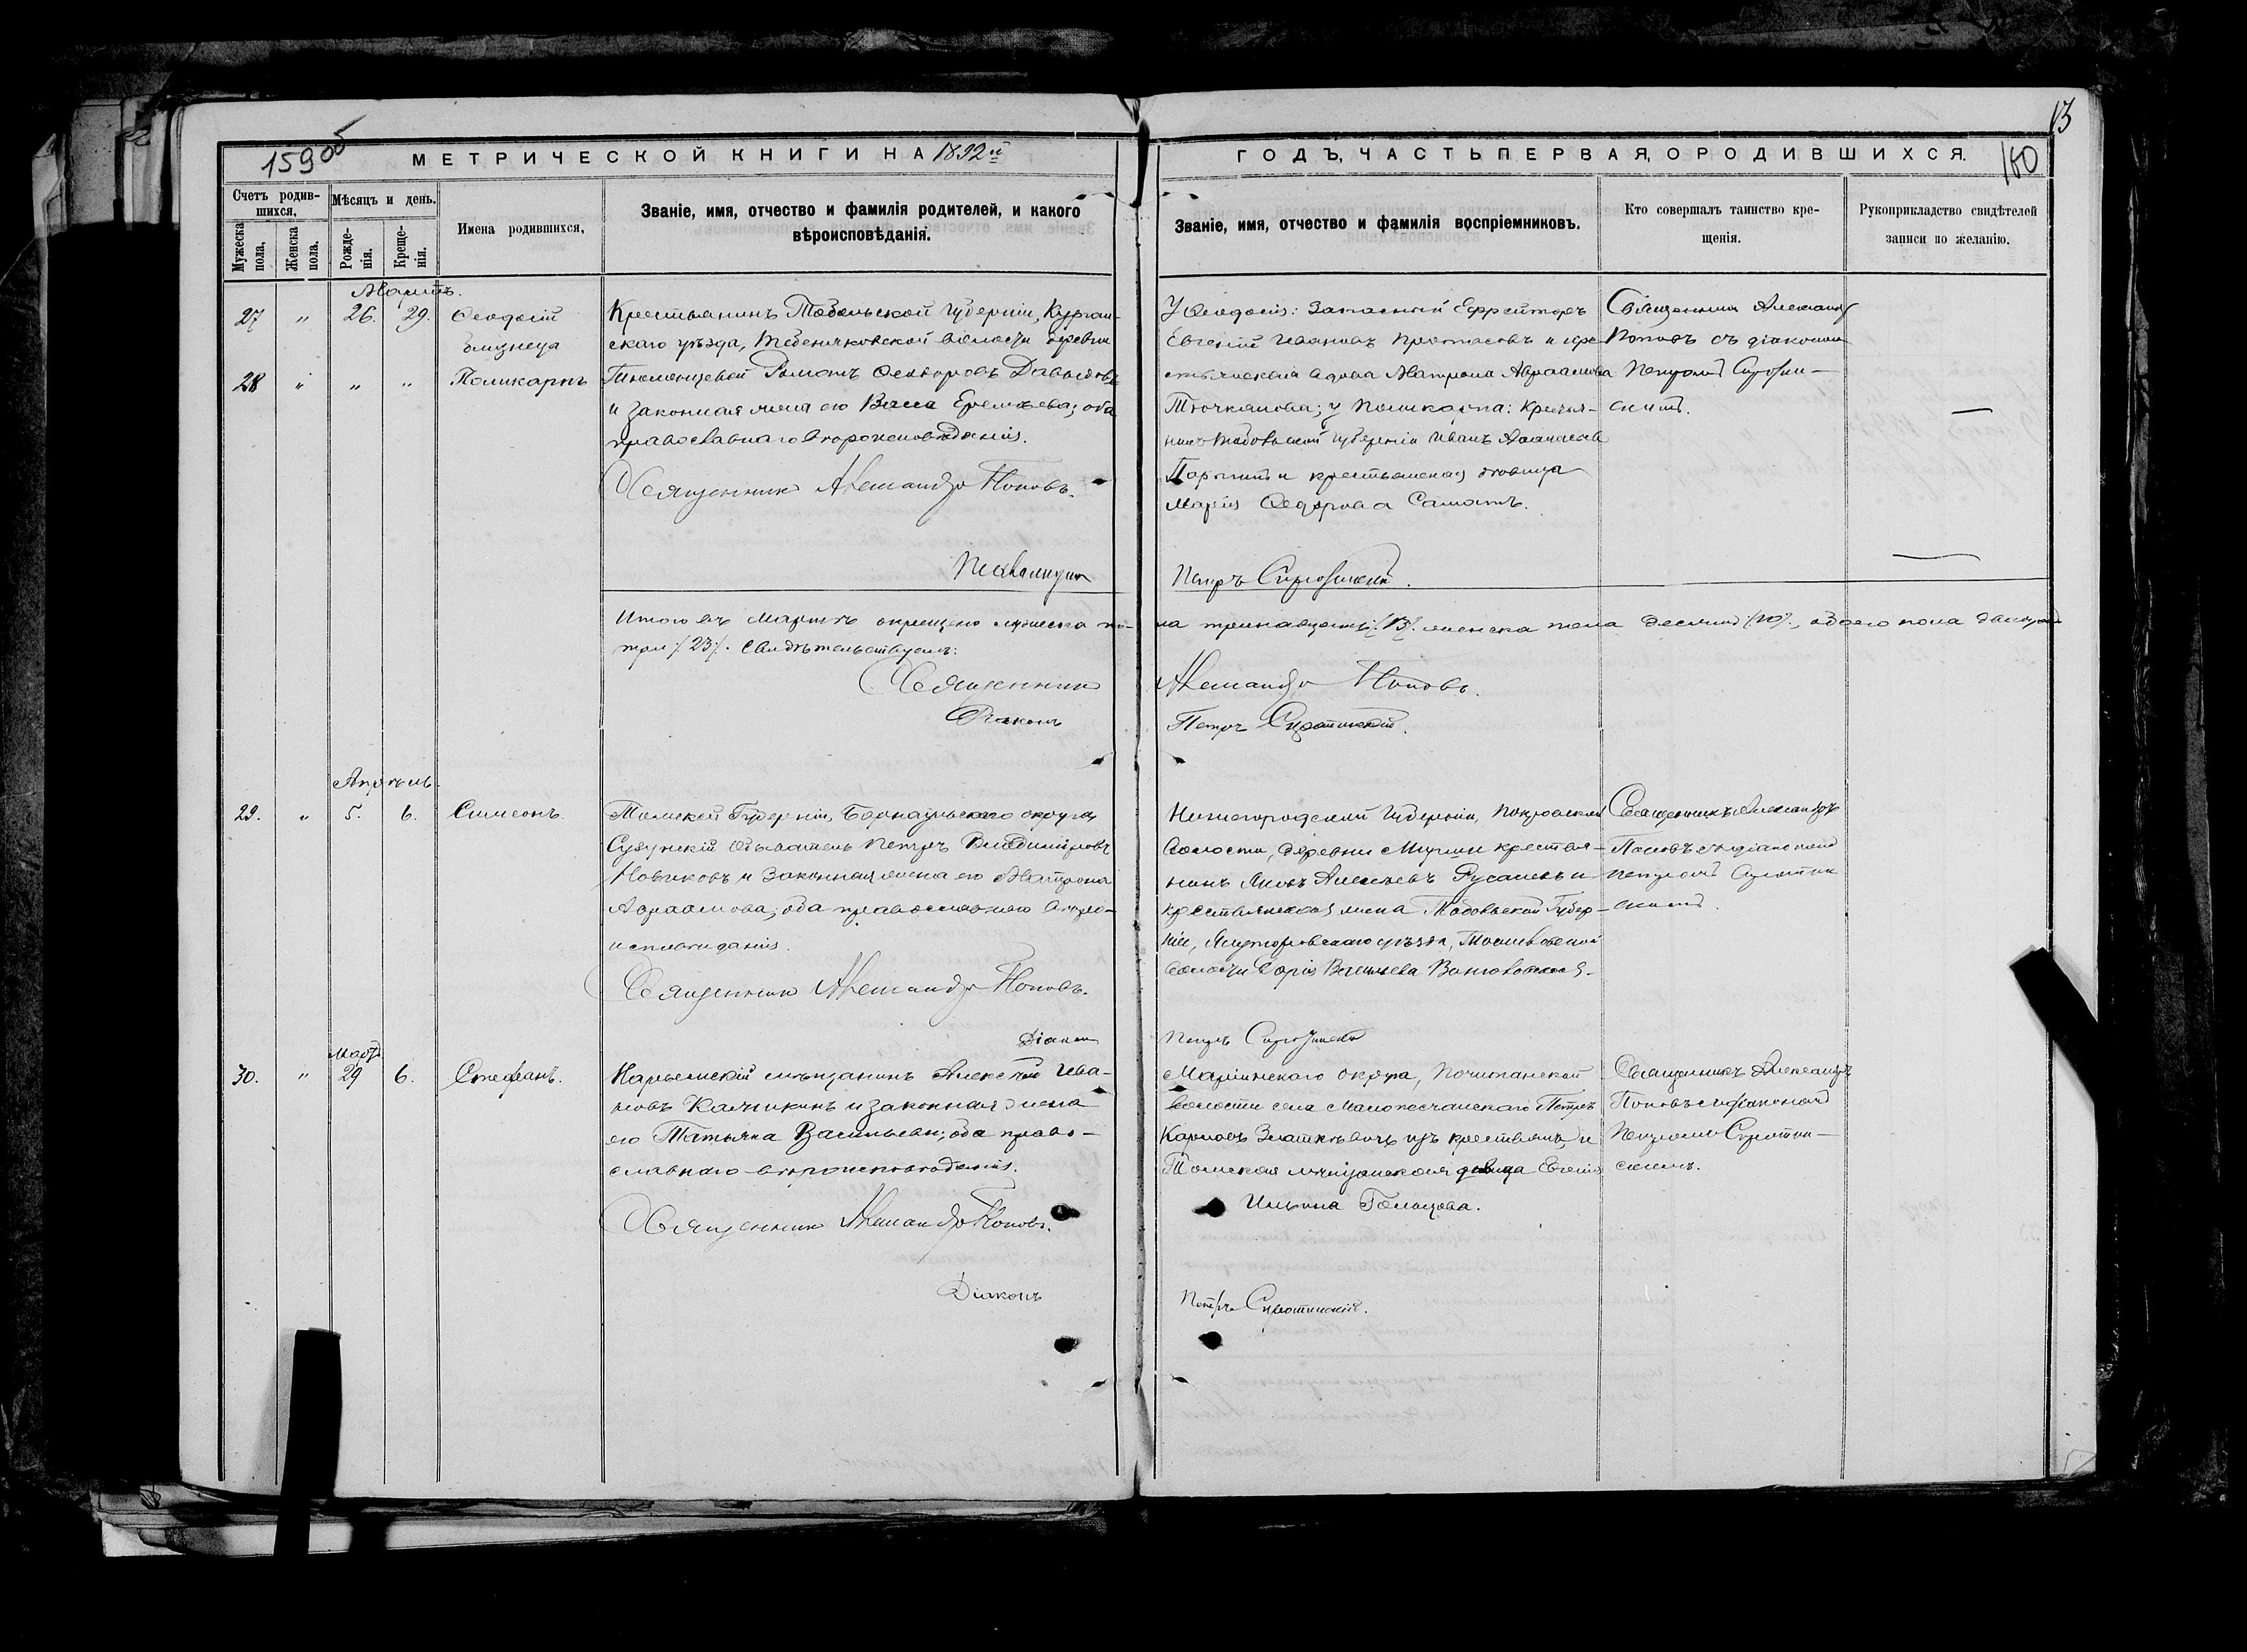 159об
13
160
МЕТРИЧЕСКОЙ КНИГИ НА 1892й
ГОДЪ, ЧАСТЬ ПЕРВАЯ, О РОДИВШИХСЯ.
Счетъ родив-
шихся,
Мужеска
пола,
Женска
пола.
Мѣсяцъ и день.
Рожде-
нія.
Креще-
нія.
Имена родившихся,
Званіе, имя, отчество и фамилія родителей, и какого
вѣроисповѣданія.
Званіе, имя, отчество и фамилія воспріемниковъ.
Кто совершалъ таинство кре-
щенія.
Рукоприкладство свидѣтелей
записи по желанію.
Мартъ.
27 " 26. 29. Ѳеодосій
близнеца
28 " " " Поликарпъ
Крестьянинъ Тобольской губерніи, Курган-
скаго уѣзда, Тебенякской волости деревни
Романъ Ѳеодоровъ Давыдовъ
и законная жена его Васса Еремѣева; оба
православнаго вѣроисповѣданія.
Священникъ Александръ Поповъ.
Псаломщикъ
У Ѳеодосія: Запасный Ефрейторъ
Евгеній Ивановъ Протасовъ и кре-
стьянская вдова Матрона Авраамова
у Поликарпа: Крестья-
нинъ Тобольской губерніи Иванъ
и крестьянская дѣвица
Марія Ѳедорова
Петръ Сиротинскій.
Священникъ Александръ
Поповъ съ діакономъ
Петромъ Сироти-
скимъ.
Итого въ Мартѣ окрещено мужеска по-
ла тринадцать /13/. женска пола десять /10/., обоего пола двадцать
три /23/. Свидѣтельствуемъ:
Священникъ
Александръ Поповъ.
Діаконъ
Петръ Сиротинскій.
Апрѣль.
29. " 5. 6. Симеонъ.
Томской Губерніи, Барнаульскаго округа,
Сузунскій обыватель Петръ Владиміровъ
Новиковъ и законная жена его Матрона
Авраамова; оба православнаго вѣро-
исповѣданія.
Священникъ Александръ Поповъ.
Діаконъ
Нижегородской Губерніи, Покровской
волости, деревни крестья-
нинъ Яковъ Алексѣевъ и
крестьянская жена Тобольской Губер-
ніи, Ялуторовскаго уѣзда,
волости Дарія Васильева
Петръ Сиротинскій
Священникъ Александръ
Поповъ съ діакономъ
Петромъ Сиротин-
скимъ.
Мартъ
30. " 29 6. Стефанъ.
Нарымскій мѣщанинъ Алексѣй Ива-
новъ Калчикинъ и законная жена
его Татьяна Васильева; оба право-
славнаго вѣроисповѣданія.
Священникъ Александръ Поповъ.
Діаконъ
Маріинскаго округа, Почитанской
волости села Малопесчанскаго Петръ
Карповъ изъ крестьянъ, и
Томская мѣщанская дѣвица Евгенія
Ильина Гольцова.
Петръ Сиротинскій.
Священникъ Александръ
Поповъ съ діакономъ
Петромъ Сиротин-
скимъ.